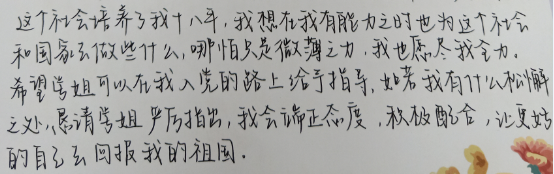 这个社会培养了我十八年,我想在我有能力之时也为这个社会
和国家去做些什么,哪怕只是微薄之力,我也愿尽我全力.
希望学姐可以在我入党的路上给予指导,如若我有什么松懈
之处,恳请学姐严厉指出,我会端正态度,积极配合,让更好
的自己去回报我的祖国.